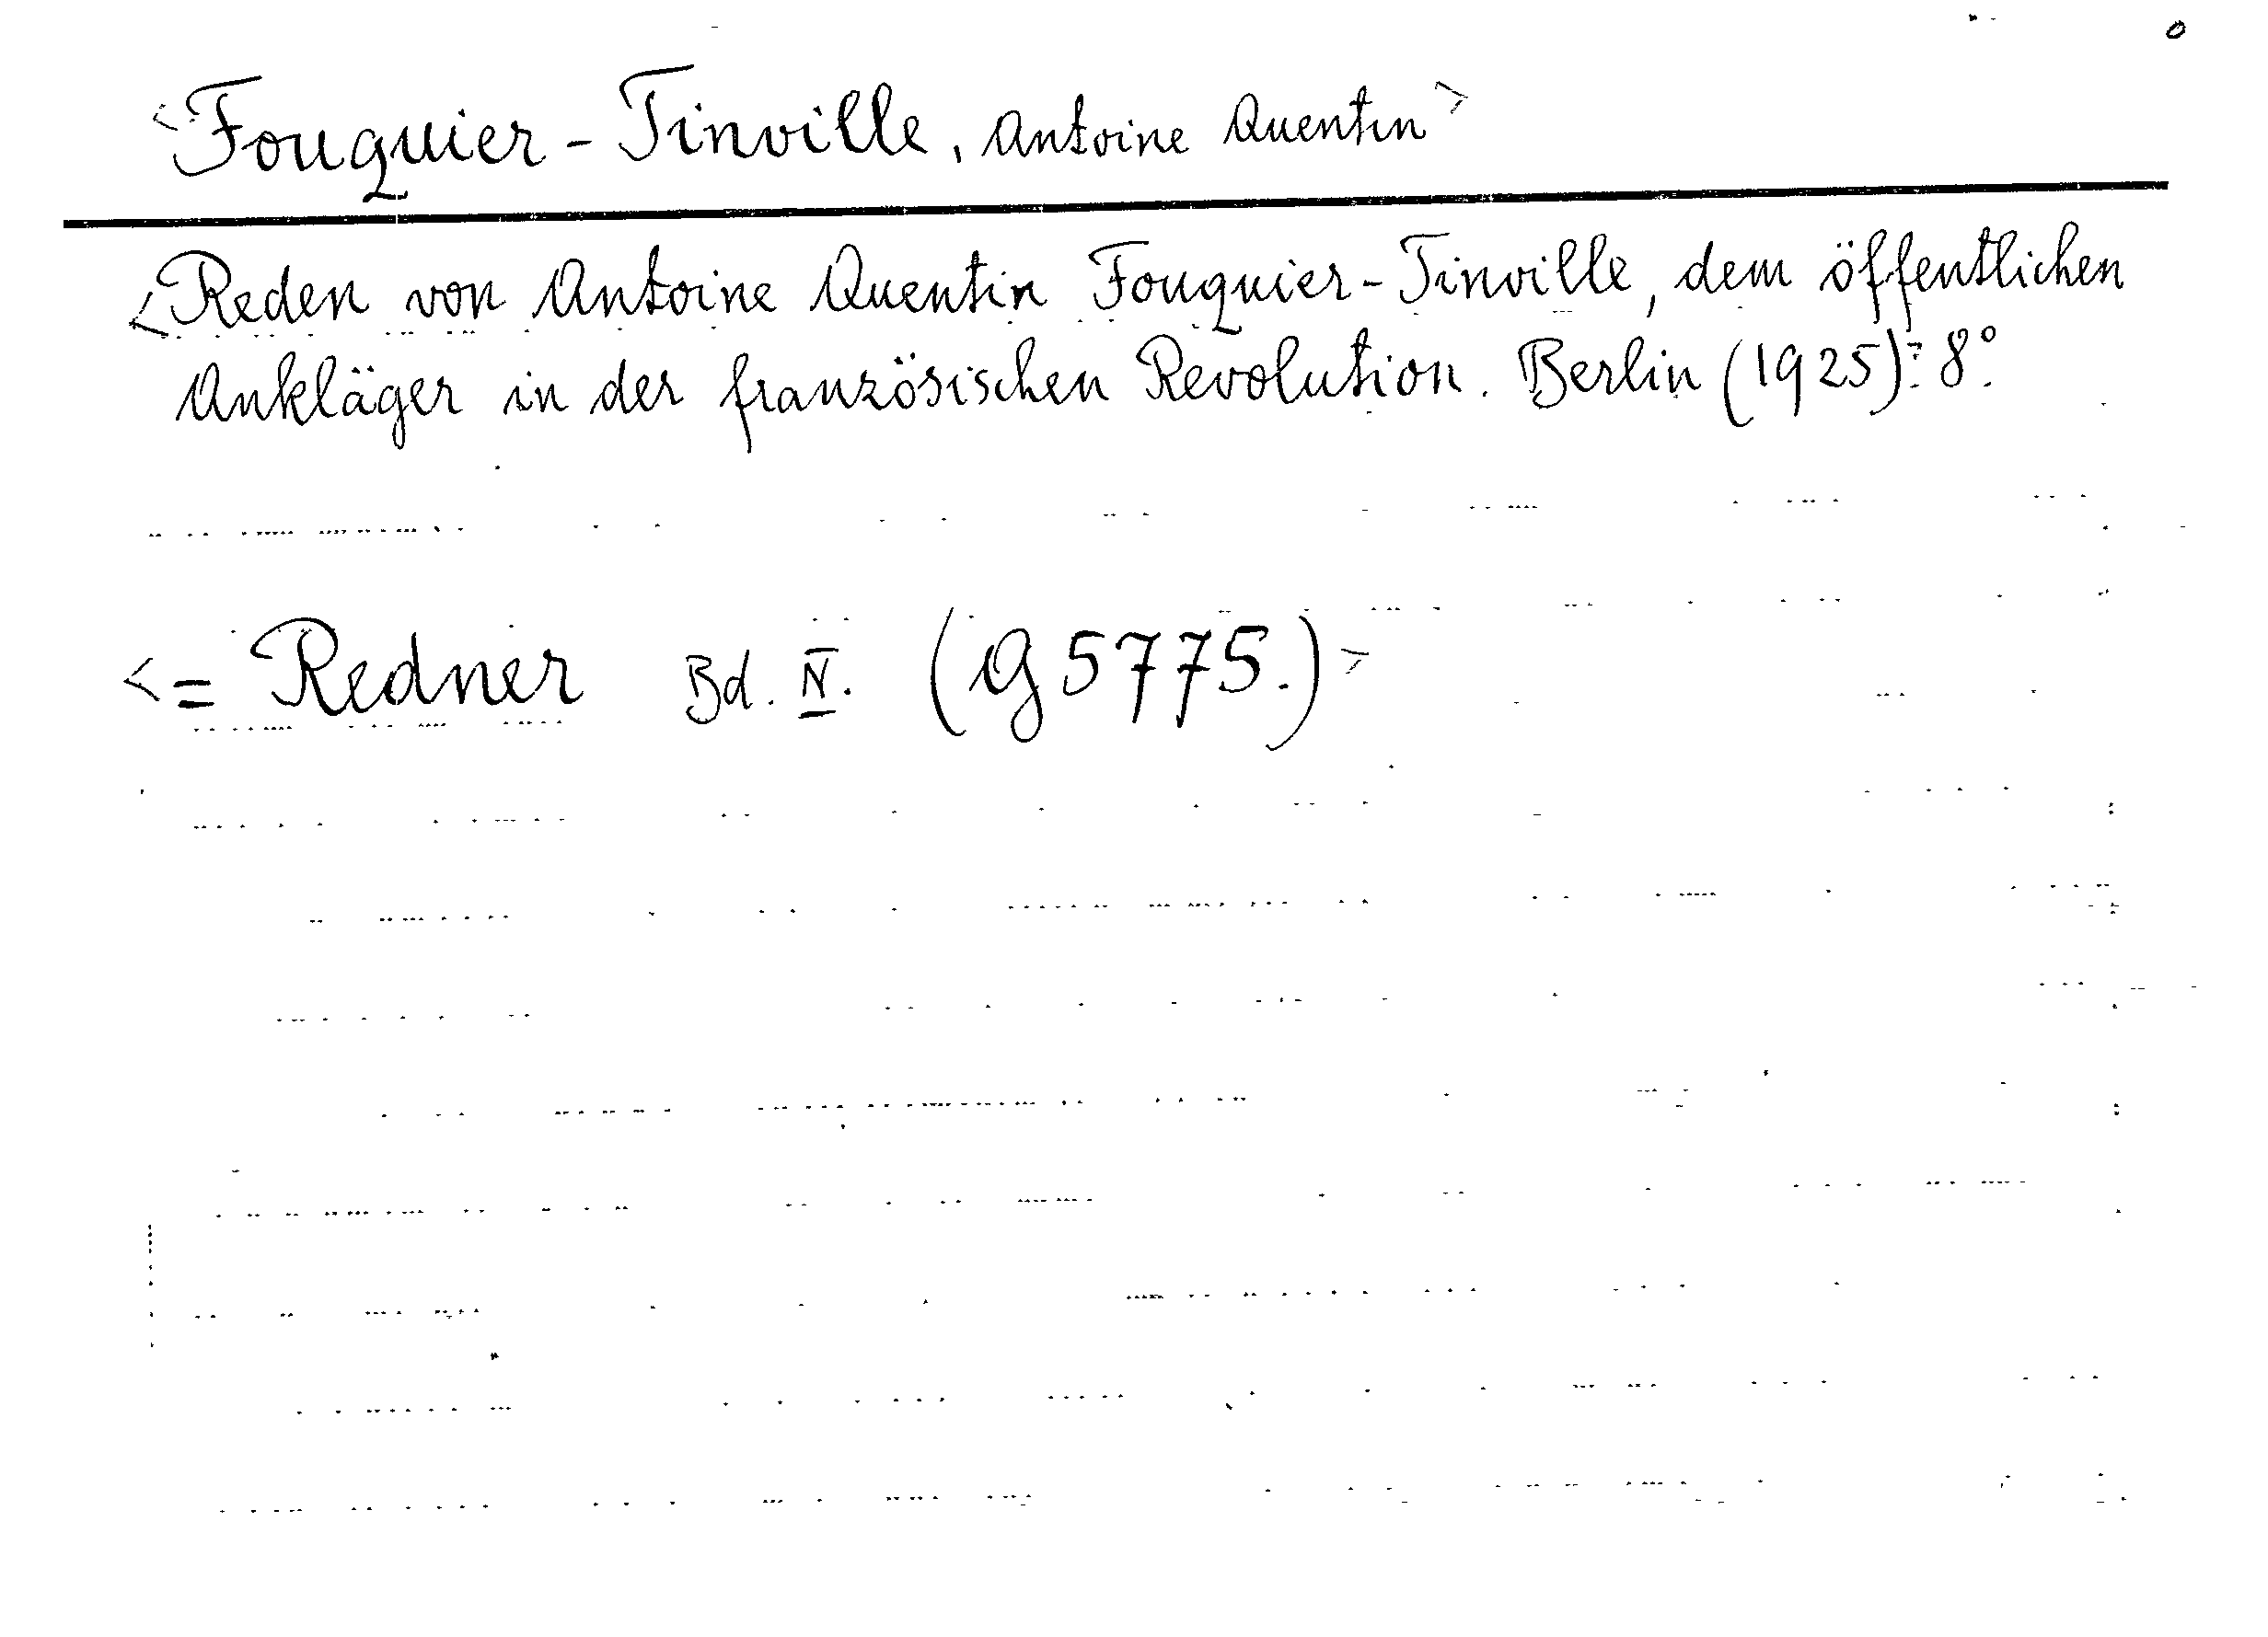 <Fouquier-Tinville, Antoine Quentin>
<Reden von Antoine Quentin Fouquier-Tinville, dem öffentlichen
Ankläger in der französischen Revolution. Berlin (1925)> 8°.
<= Redner Bd. IV. (G 5775.)>